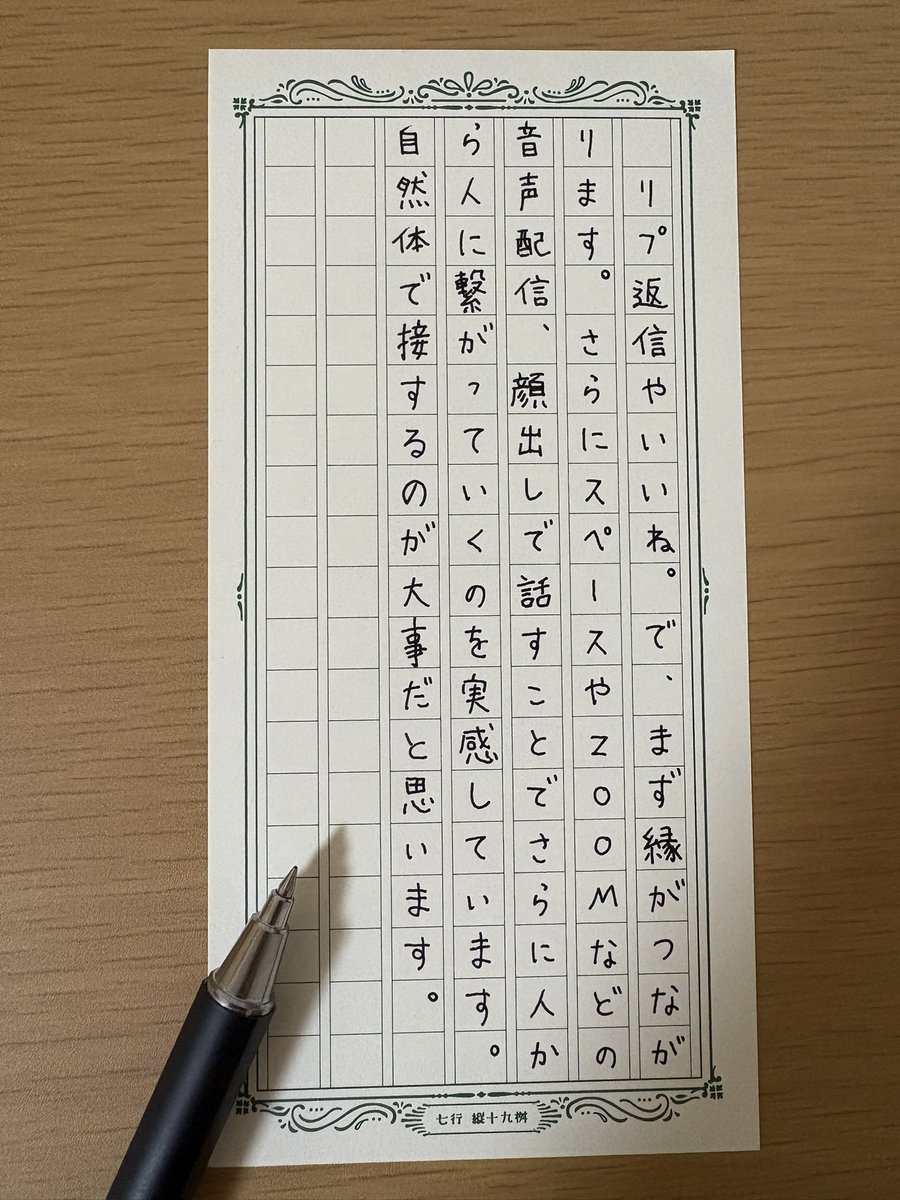 リプ返信やいいね。で、まず縁がつなが
ります。さらにスペースやZOOMなどの
音声配信、顔出しで話すことでさらに人か
ら人に繋がっていくのを実感しています。
自然体で接するのが大事だと思います。
七行 縦十九桝